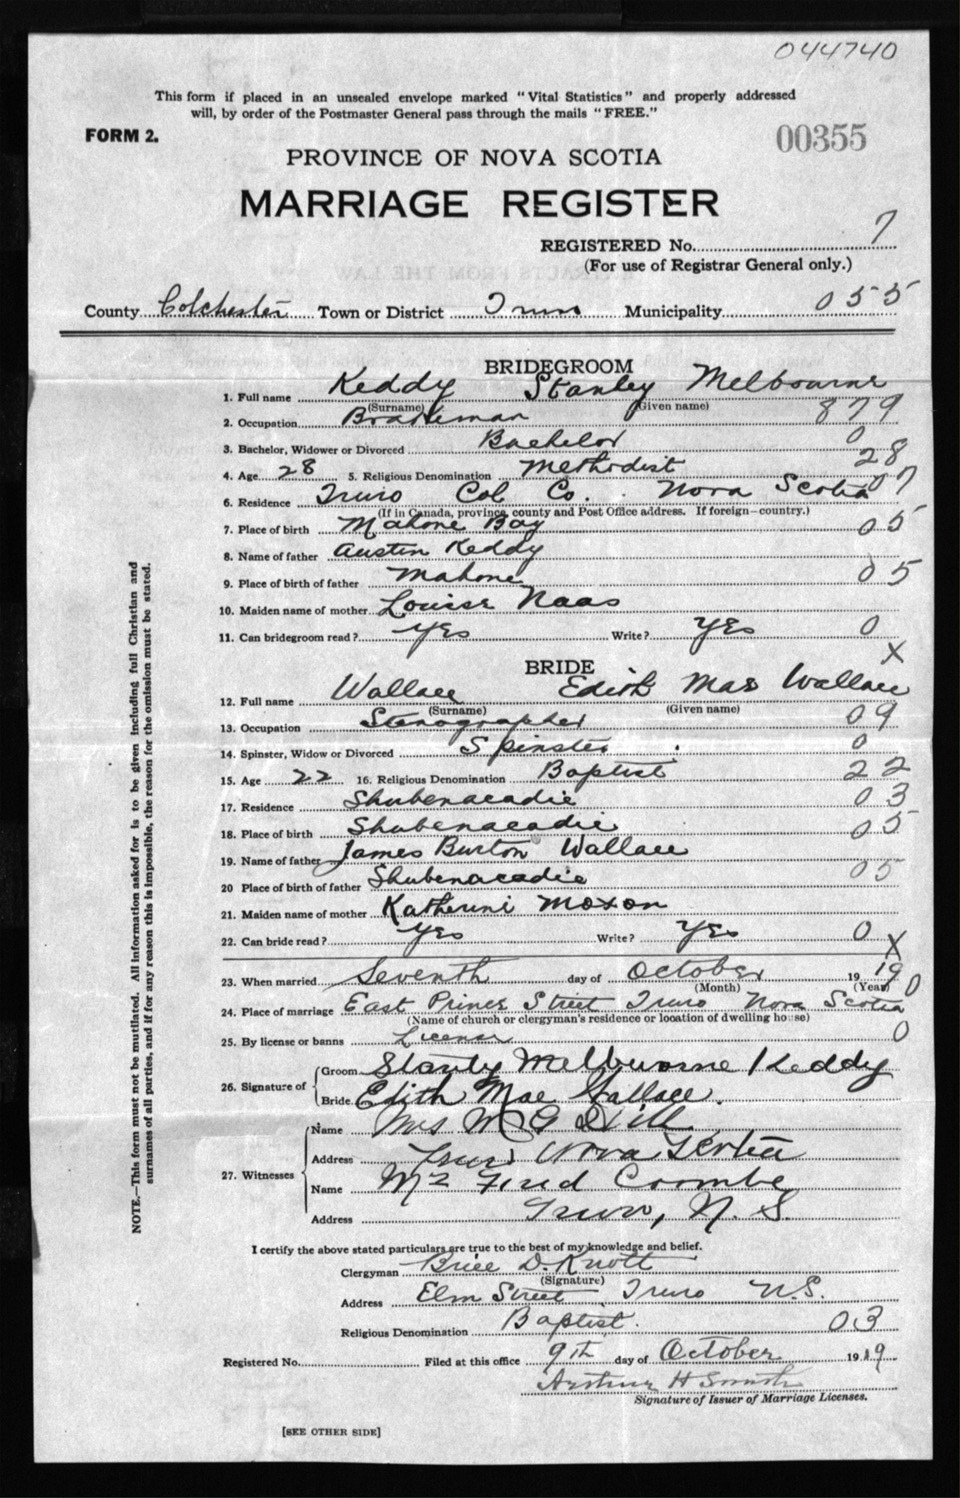 044740
This form if placed in an unsealed envelope marked "Vital Statistics" and properly addressed
will, by order of the Postmaster General pass through the mails "FREE."
FORM 2.
00355
PROVINCE OF NOVA SCOTIA
MARRIAGE REGISTER
REGISTERED No. 7
(For use of Registrar General only.)
County Colchester Town or District Truro Municipality 055
BRIDEGROOM
1. Full name Keddy Stanley Melbourne
(Surname) (Given name)
2. Occupation Brakeman 879
3. Bachelor, Widower or Divorced Bachelor 0
4. Age 28 5. Religious Denomination Methodist 28
6. Residence Truro Col Co. Nova Scotia 07
(If in Canada, province, county and Post Office address. If foreign—country.)
7. Place of birth Mahone Bay 05
8. Name of father Austin Keddy
9. Place of birth of father Mahone 05
10. Maiden name of mother Louise Naas
11. Can bridegroom read? Yes Write? Yes 0
X
BRIDE
12. Full name Wallace Edith Mae Wallace
(Surname) (Given name)
13. Occupation Stenographer 09
14. Spinster, Widow or Divorced Spinster 0
15. Age 22 16. Religious Denomination Baptist 22
17. Residence Shubenacadie 03
18. Place of birth Shubenacadie 05
19. Name of father James Burton Wallace
20 Place of birth of father Shubenacadie 05
21. Maiden name of mother Katherine Moxon
22. Can bride read? Yes Write? Yes 0 X
23. When married Seventh day of October 19 19 0
(Month) (Year)
24. Place of marriage East Prince Street Truro Nova Scotia
(Name of church or clergyman's residence or location of dwelling house)
25. By license or banns License 0
26. Signature of Groom Stanley Melbourne Keddy
Bride Edith Mae Wallace.
27. Witnesses
Name Mrs M G Dill
Address Truro Nova Scotia
Name Mr Fred Coombe
Address Truro, N. S.
I certify the above stated particulars are true to the best of my knowledge and belief.
Clergyman Brice D. Knott
(Signature)
Address Elm Street Truro N.S.
Religious Denomination Baptist. 03
Registered No. Filed at this office 9th day of October 1919
Arthur H Smith
Signature of Issuer of Marriage Licenses.
[SEE OTHER SIDE]
NOTE.—This form must not be mutilated. All information asked for is to be given including full Christian and
surnames of all parties, and if for any reason this is impossible, the reason for the omission must be stated.